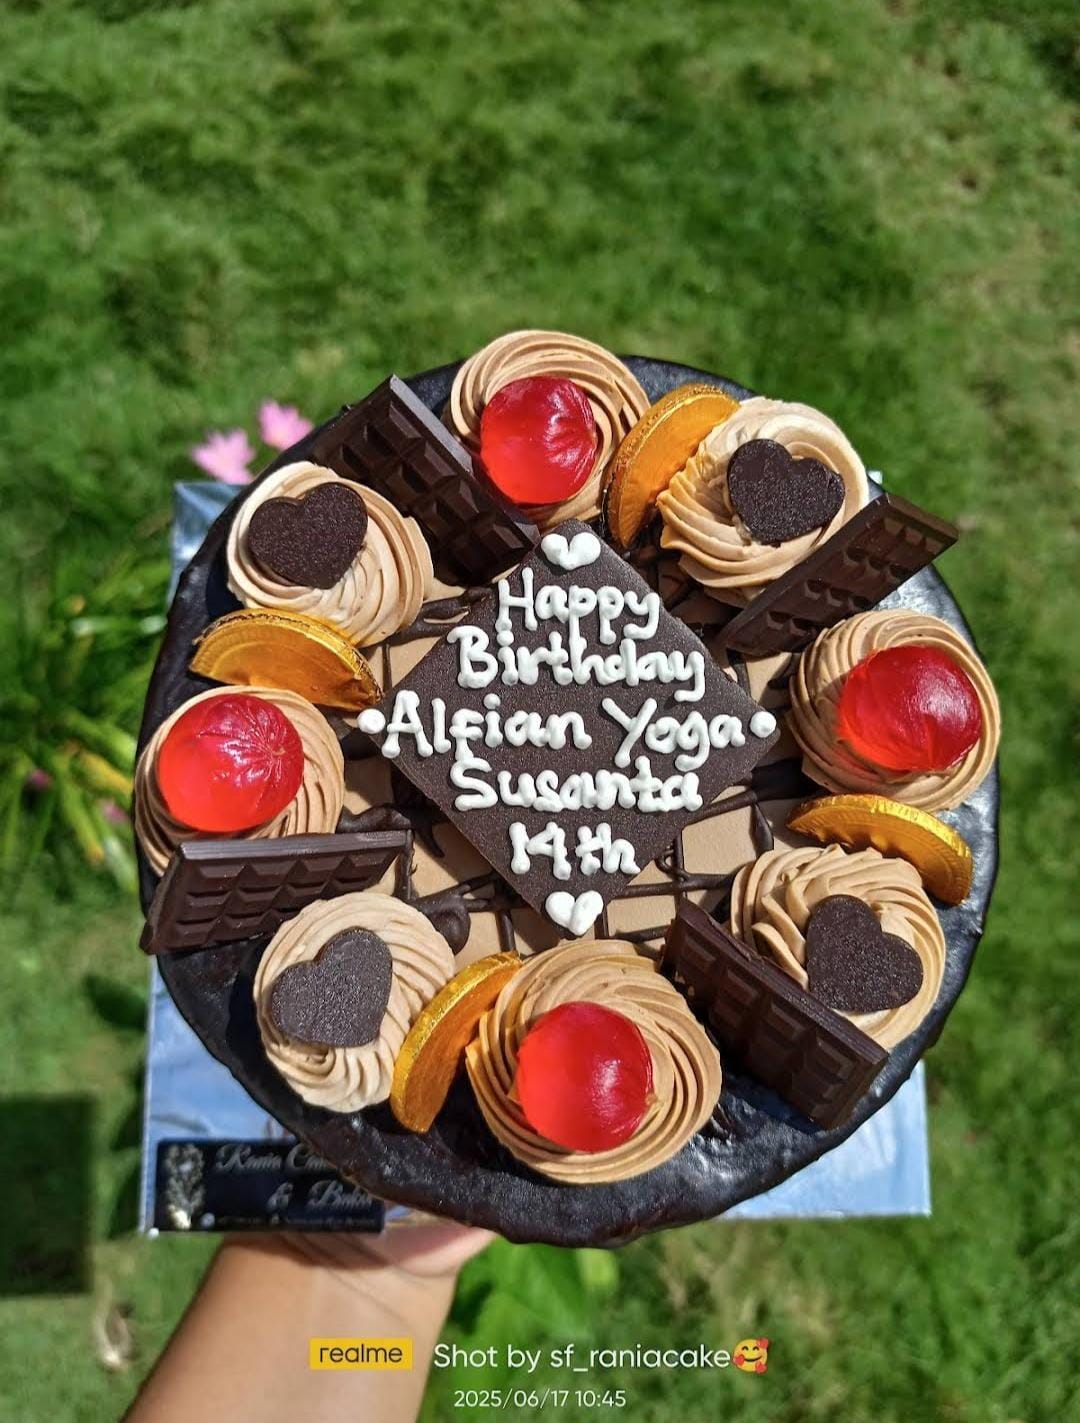 Happy
Birthday
Alfian Yoga
Susanta
14th
&
realme Shot by sf_raniacake🥰
2025/06/17 10:45